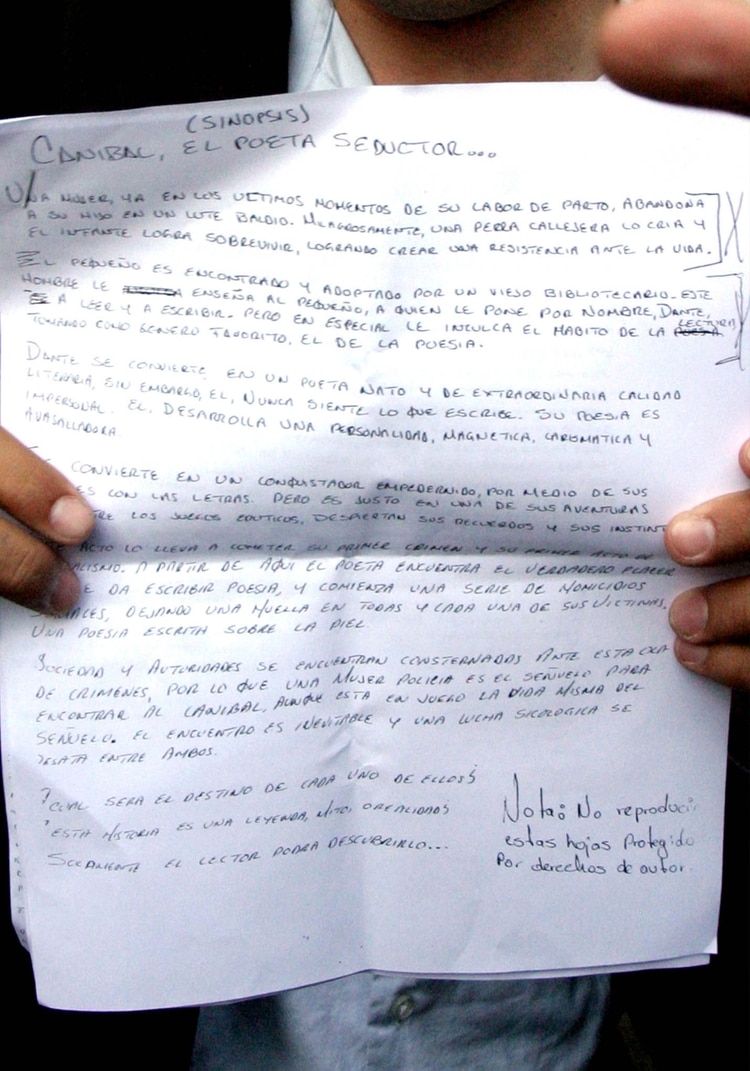 (SINOPSIS)
CANIBAL, EL POETA SEDUCTOR...
UNA MUJER, YA EN LOS ULTIMOS MOMENTOS DE SU LABOR DE PARTO, ABANDONA
A SU HIJO EN UN LOTE BALDIO. MILAGROSAMENTE, UNA PERRA CALLEJERA LO CRIA Y
EL INFANTE LOGRA SOBREVIVIR, LOGRANDO CREAR UNA RESISTENCIA ANTE LA VIDA.
EL PEQUEÑO ES ENCONTRADO Y ADOPTADO POR UN VIEJO BIBLIOTECARIO. ESTE
HOMBRE LE ENSEÑA AL PEQUEÑO, A QUIEN LE PONE POR NOMBRE, DANTE,
A LEER Y A ESCRIBIR. PERO EN ESPECIAL LE INCULCA EL HABITO DE LA LECTURA
TOMANDO COMO GENERO FAVORITO, EL DE LA POESIA.
DANTE SE CONVIERTE EN UN POETA NATO Y DE EXTRAORDINARIA CALIDAD
LITERARIA, SIN EMBARGO, EL, NUNCA SIENTE LO QUE ESCRIBE. SU POESIA ES
IMPERSONAL. EL, DESARROLLA UNA PERSONALIDAD, MAGNETICA, CARISMATICA Y
AVASALLADORA.
CONVIERTE EN UN CONQUISTADOR EMPEDERNIDO, POR MEDIO DE SUS
CON LAS LETRAS. PERO ES JUSTO EN UNA DE SUS AVENTURAS
LOS JUEGOS EROTICOS, DESPIERTAN SUS RECUERDOS Y SUS
ACTO LO LLEVA A COMETER SU PRIMER CRIMEN Y SU PRIMER ACTO DE
A PARTIR DE AQUI EL POETA ENCUENTRA EL VERDADERO PLACER
DA ESCRIBIR POESIA, Y COMIENZA UNA SERIE DE HOMICIDIOS
DEJANDO UNA HUELLA EN TODAS Y CADA UNA DE SUS VICTIMAS,
UNA POESIA ESCRITA SOBRE LA PIEL.
SOCIEDAD Y AUTORIDADES SE ENCUENTRAN CONSTERNADAS ANTE ESTA OLA
DE CRIMENES, POR LO QUE UNA MUJER POLICIA ES EL SEÑUELO PARA
ENCONTRAR AL CANIBAL, AUNQUE ESTA EN JUEGO LA VIDA MISMA DEL
SEÑUELO. EL ENCUENTRO ES INEVITABLE Y UNA LUCHA SICOLOGICA SE
DESATA ENTRE AMBOS.
?CUAL SERA EL DESTINO DE CADA UNO DE ELLOS?
?ESTA HISTORIA ES UNA LEYENDA, MITO, O REALIDAD?
SOLAMENTE EL LECTOR PODRA DESCUBRIRLO...
Nota: No reproducir
estas hojas Protegido
Por derechos de autor.